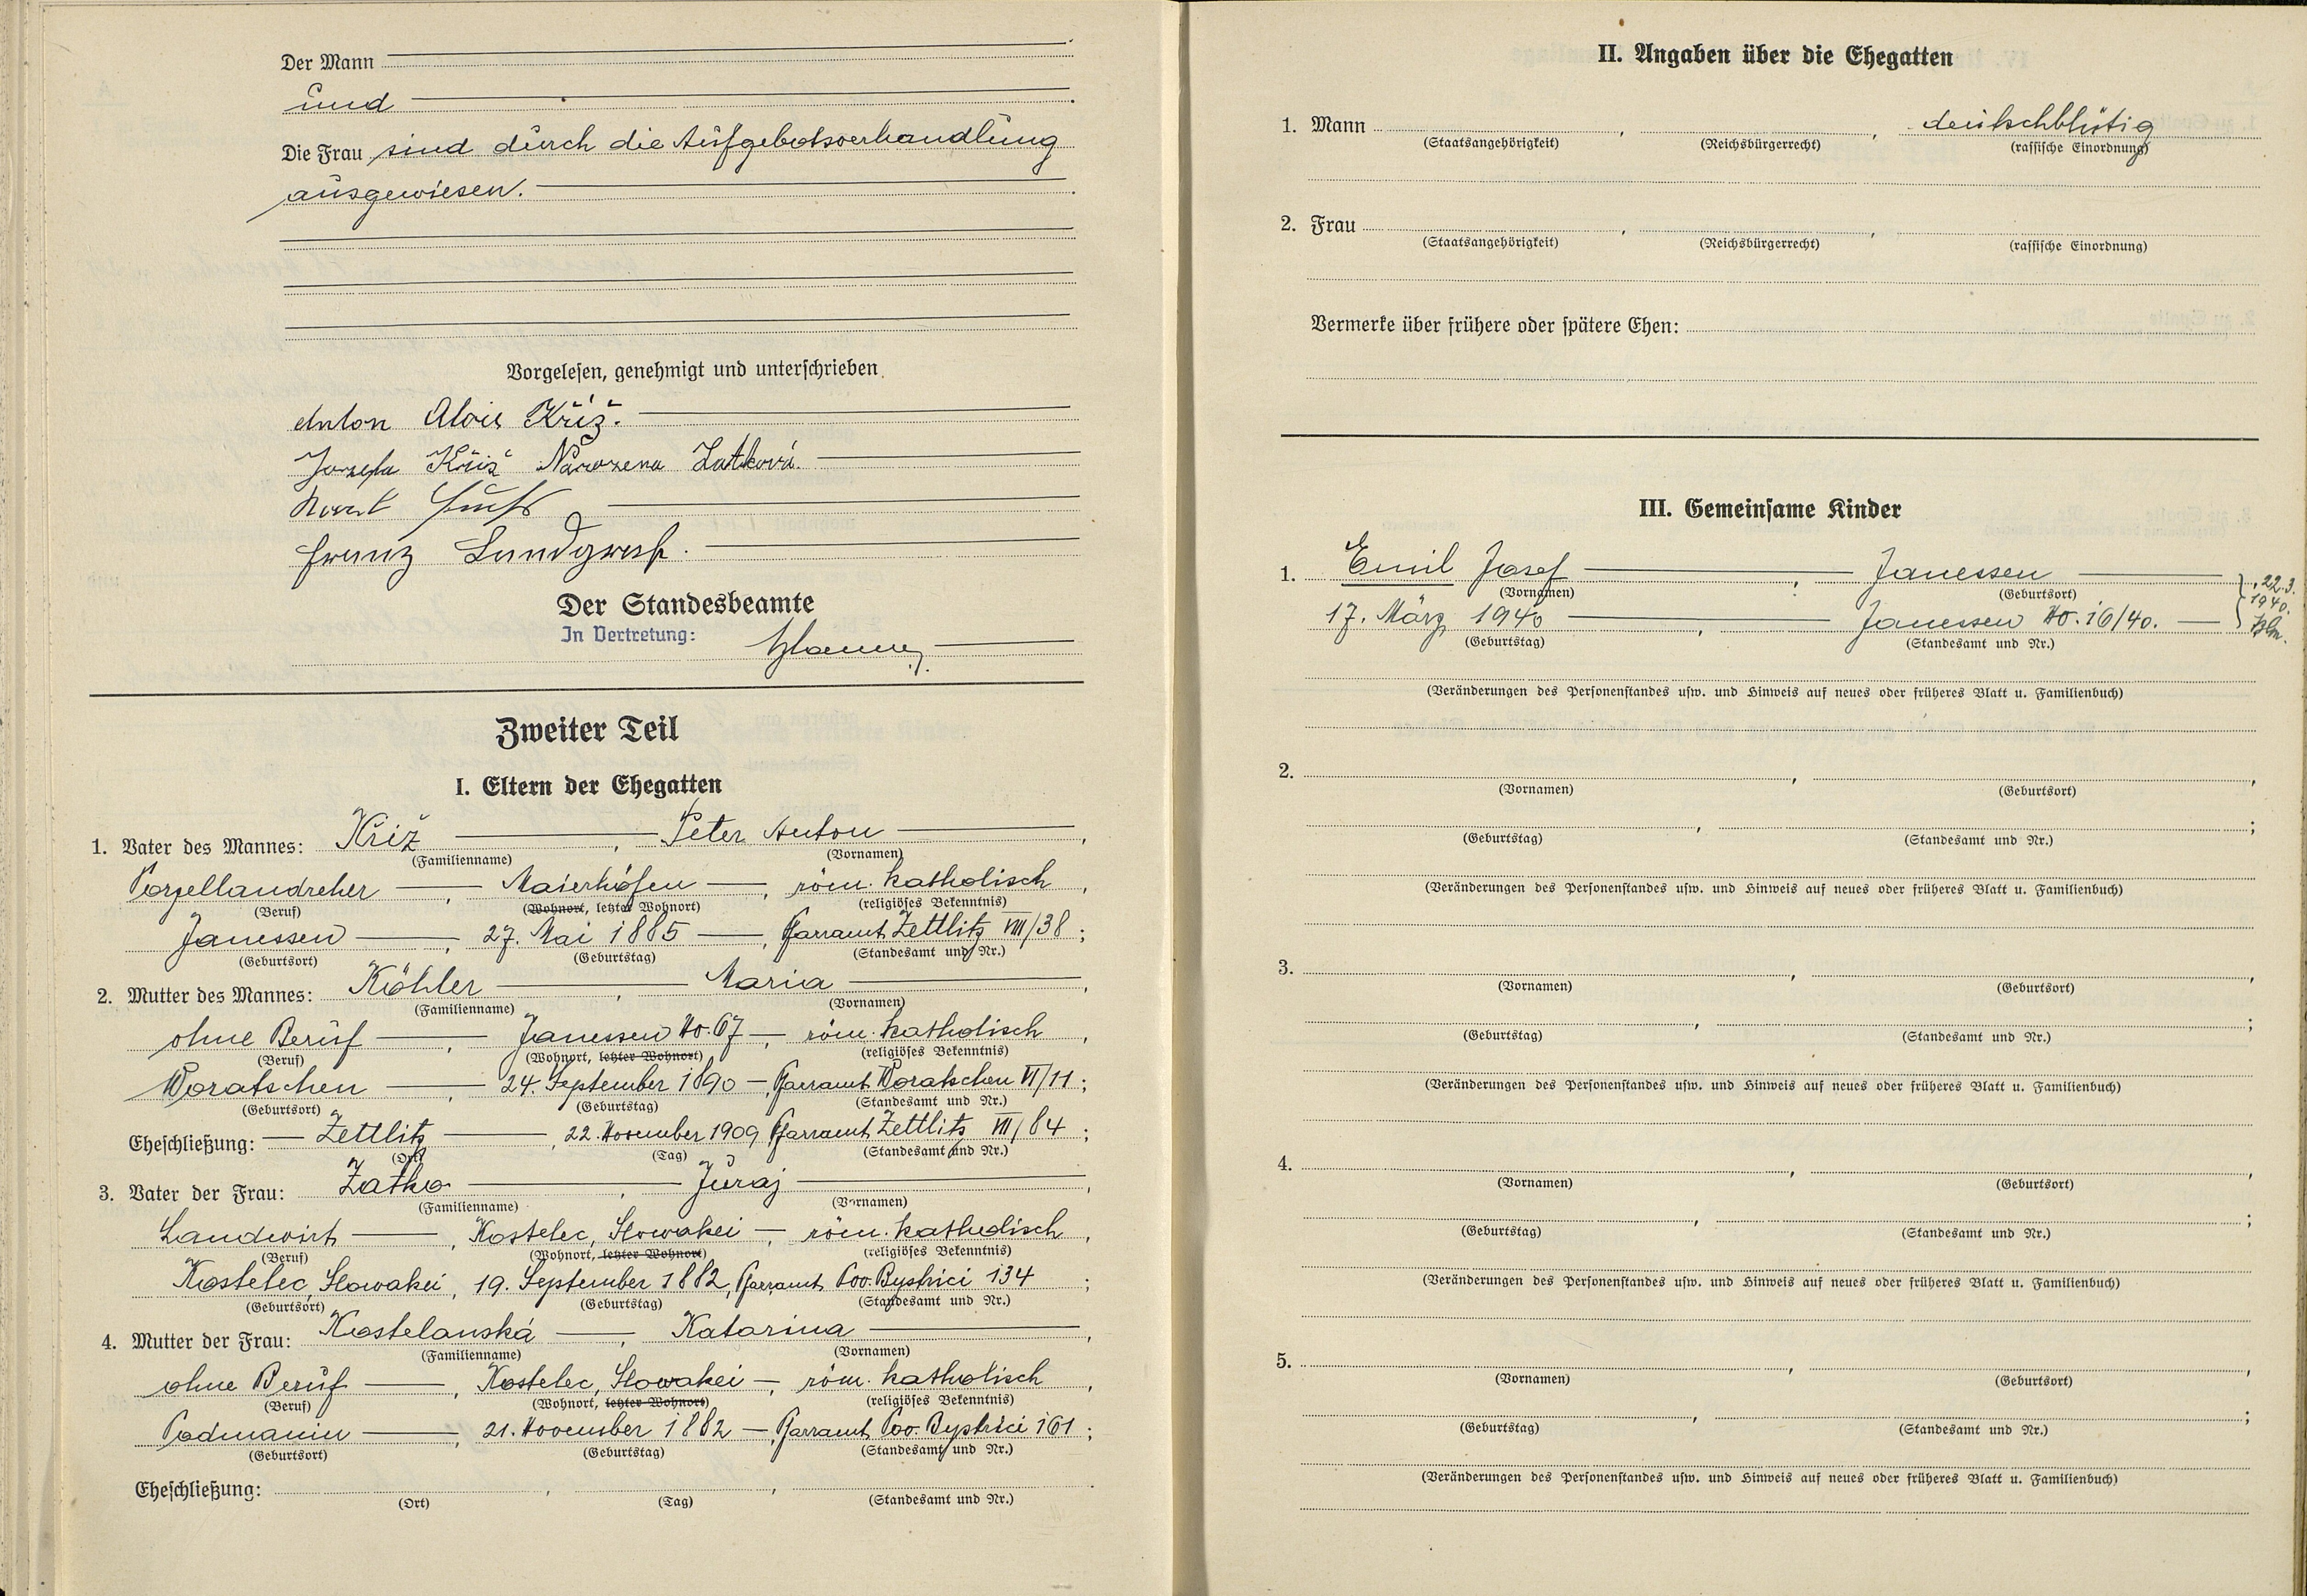 Der Mann
und
Die Frau sind durch die Aufgebotsverhandlung
ausgewiesen.
Vorgelesen, genehmigt und unterschrieben
Anton Alois Kříž.
Jozefa Kříž Narozena Zatková.
Franz Landgraf.
Der Standesbeamte
In Vertretung:
Zweiter Teil
I. Eltern der Ehegatten
1. Vater des Mannes: Kříž, Peter Anton,
(Familienname) (Vornamen)
Porzellandreher, Maierhöfen, röm. katholisch,
(Beruf) (Wohnort, letzter Wohnort) (religiöses Bekenntnis)
Janessen, 27. Mai 1885, Pfarramt Zettlitz VIII/38;
(Geburtsort) (Geburtstag) (Standesamt und Nr.)
2. Mutter des Mannes: Köhler, Maria,
(Familienname) (Vornamen)
ohne Beruf, Janessen No. 67, röm. katholisch,
(Beruf) (Wohnort, letzter Wohnort) (religiöses Bekenntnis)
Woratschen, 24. September 1890, Pfarramt Woratschen VI/11;
(Geburtsort) (Geburtstag) (Standesamt und Nr.)
Eheschließung: Zettlitz, 22. November 1909, Pfarramt Zettlitz VII/84;
(Ort) (Tag) (Standesamt und Nr.)
3. Vater der Frau: Zatko, Juraj,
(Familienname) (Vornamen)
Landwirt, Kostelec, Slowakei, röm. katholisch,
(Beruf) (Wohnort, letzter Wohnort) (religiöses Bekenntnis)
Kostelec, Slowakei, 19. September 1882, Pfarramt Pov. Bystrici 134;
(Geburtsort) (Geburtstag) (Standesamt und Nr.)
4. Mutter der Frau: Kostelanská, Katarina,
(Familienname) (Vornamen)
ohne Beruf, Kostelec, Slowakei, röm. katholisch,
(Beruf) (Wohnort, letzter Wohnort) (religiöses Bekenntnis)
Podmanin, 21. November 1882, Pfarramt Pov. Bystrici 161;
(Geburtsort) (Geburtstag) (Standesamt und Nr.)
Eheschließung: , ,
(Ort) (Tag) (Standesamt und Nr.)
II. Angaben über die Ehegatten
1. Mann , , deutschblütig
(Staatsangehörigkeit) (Reichsbürgerrecht) (rassische Einordnung)
2. Frau , ,
(Staatsangehörigkeit) (Reichsbürgerrecht) (rassische Einordnung)
Vermerke über frühere oder spätere Ehen:
III. Gemeinsame Kinder
1. Emil Josef, Janessen, 22.3.
(Vornamen) (Geburtsort) 1940.
17. März 1940, Janessen No. 16/40.
(Geburtstag) (Standesamt und Nr.)
(Veränderungen des Personenstandes usw. und Hinweis auf neues oder früheres Blatt u. Familienbuch)
2. , ,
(Vornamen) (Geburtsort)
, ;
(Geburtstag) (Standesamt und Nr.)
(Veränderungen des Personenstandes usw. und Hinweis auf neues oder früheres Blatt u. Familienbuch)
3. , ,
(Vornamen) (Geburtsort)
, ;
(Geburtstag) (Standesamt und Nr.)
(Veränderungen des Personenstandes usw. und Hinweis auf neues oder früheres Blatt u. Familienbuch)
4. , ,
(Vornamen) (Geburtsort)
, ;
(Geburtstag) (Standesamt und Nr.)
(Veränderungen des Personenstandes usw. und Hinweis auf neues oder früheres Blatt u. Familienbuch)
5. , ,
(Vornamen) (Geburtsort)
, ;
(Geburtstag) (Standesamt und Nr.)
(Veränderungen des Personenstandes usw. und Hinweis auf neues oder früheres Blatt u. Familienbuch)